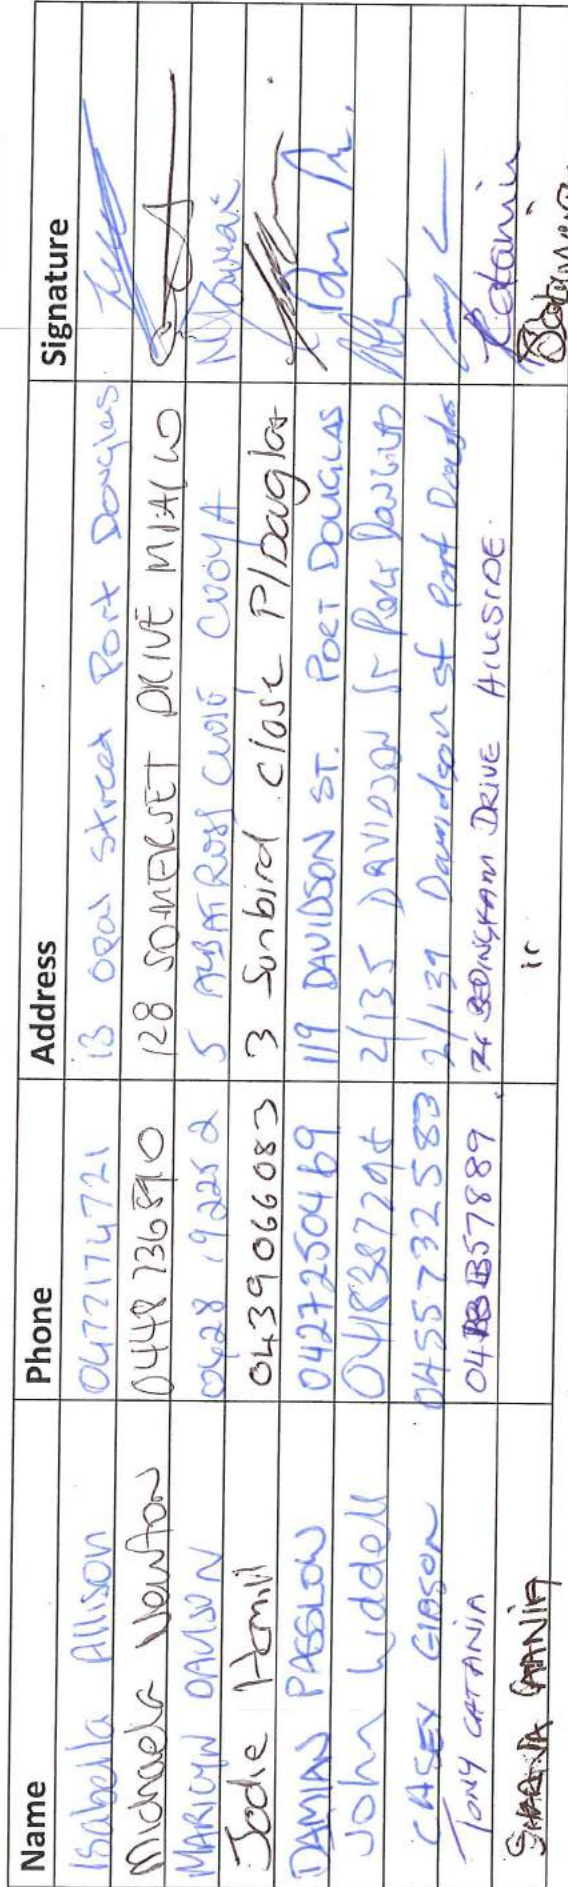 Name Phone Address Signature
Isabella Allison 0477174721 13 Opal Street Port Douglas
Michaela Newton 0448736890 128 SOMERSET DRIVE MIALLO
MARILYN DAVISON 0428 192252 5 ALBATROSS CLOSE COOYA
Jodie 0439066083 3 Sunbird close P/Douglas
DAMIAN PASSLOW 0427250469 119 DAVIDSON ST. PORT DOUGLAS
John Liddell 2/135 DAVIDSON St
CASEY GIBSON 0455732583 2/139 Davidson st Port Douglas
TONY CATANIA BEDINGHAM DRIVE HILLSIDE. Catania
CATANIA